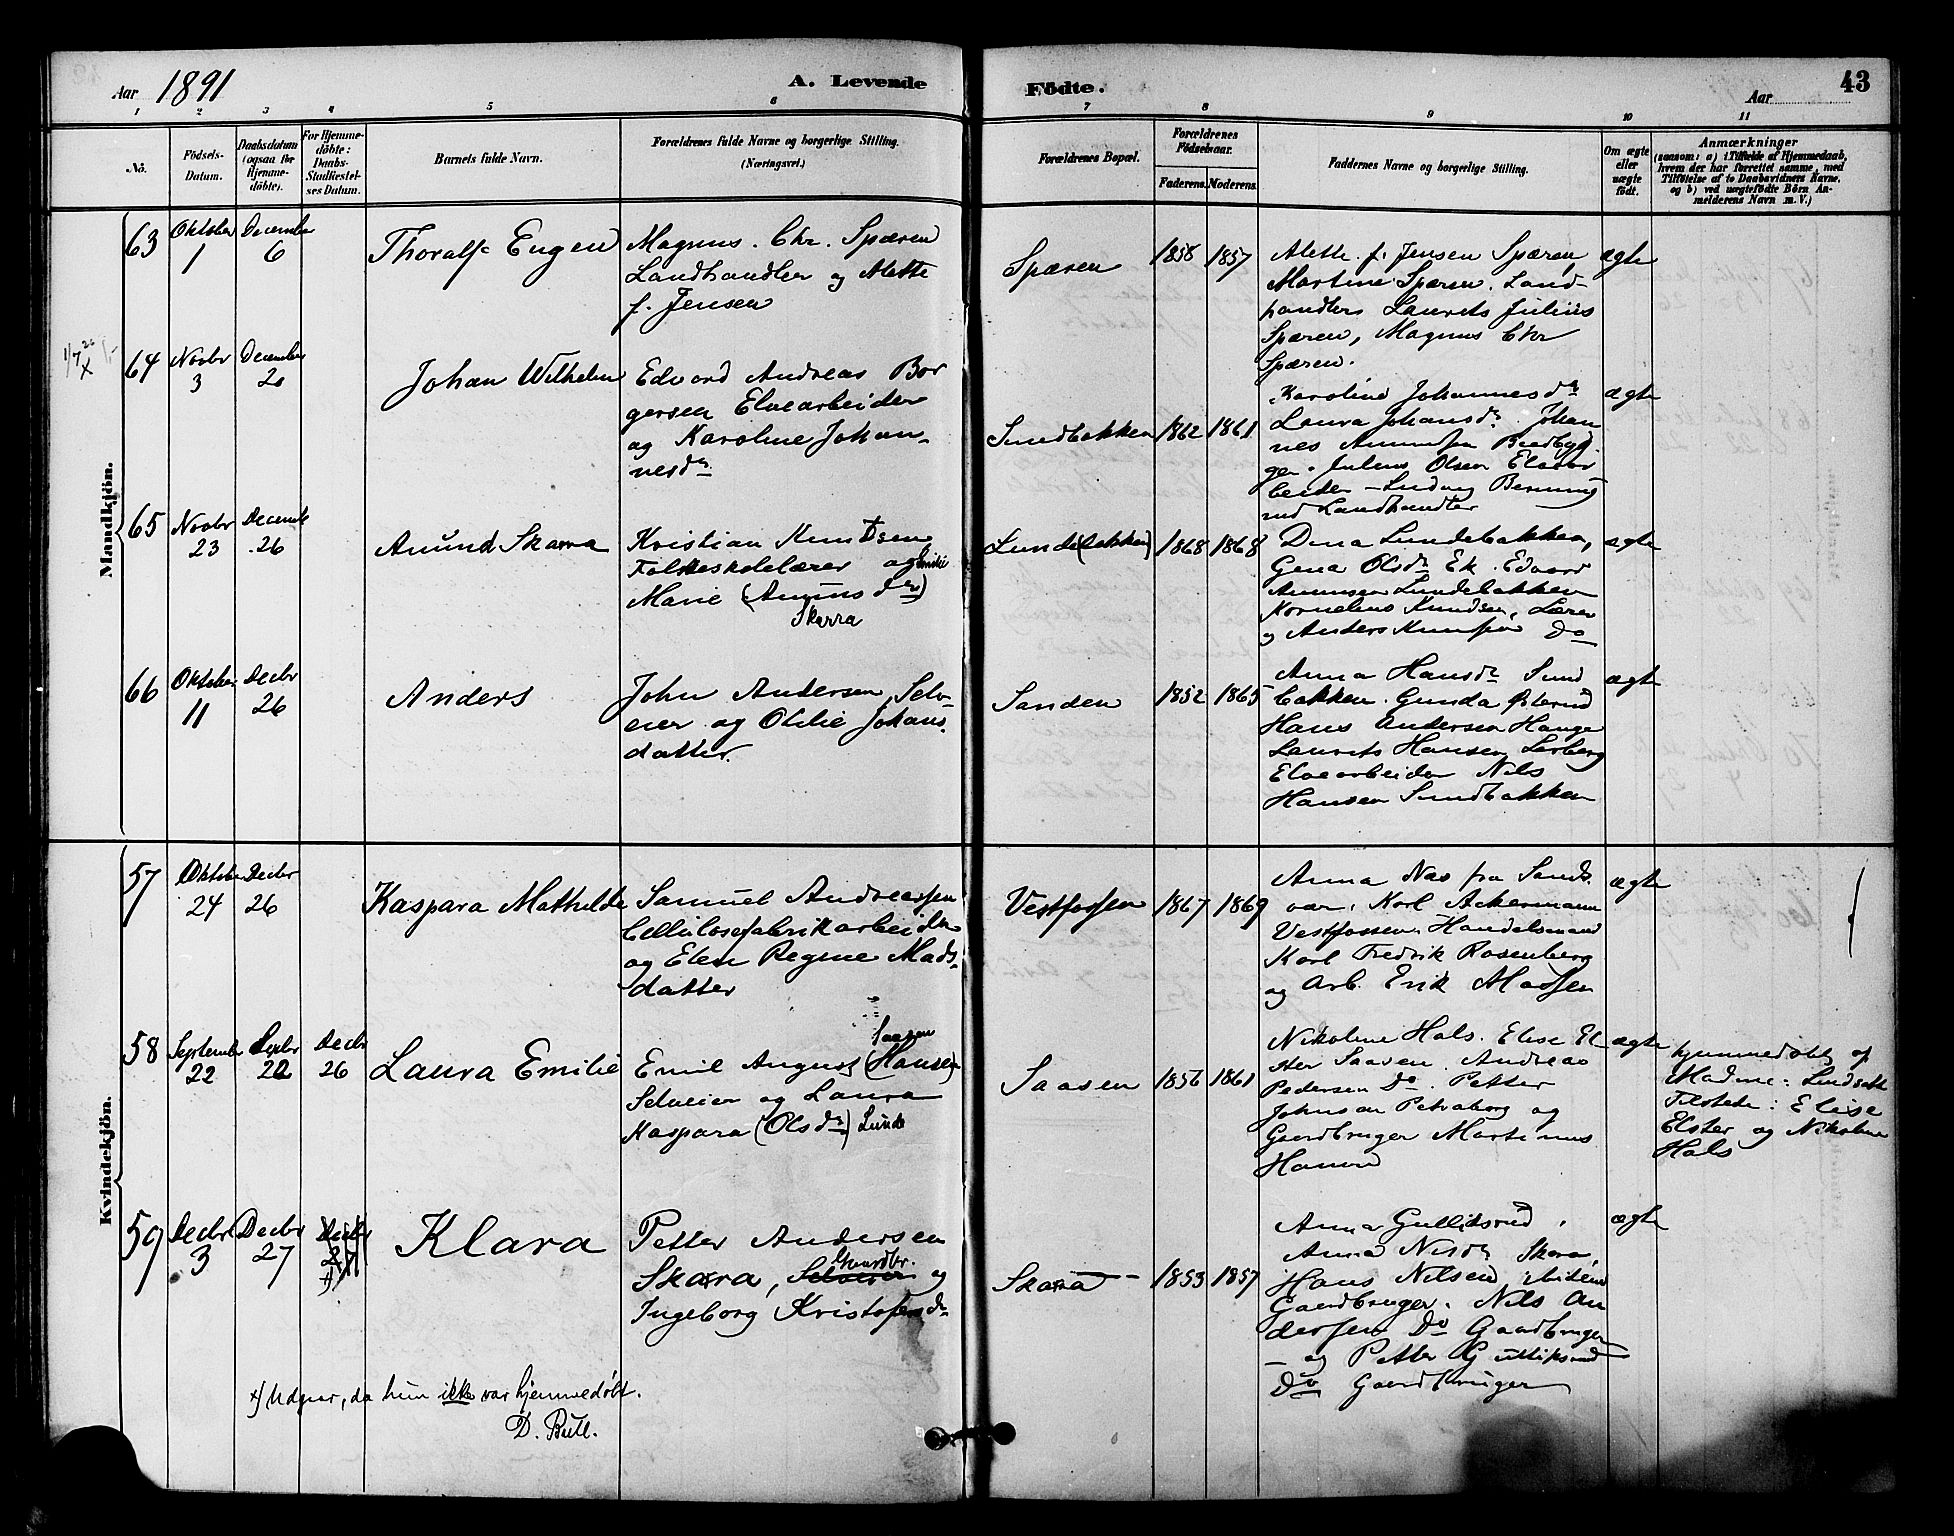 Aar 1891
A. Levende
Födte.
Aar
43
1 2 3 4 5 6 7 8 9 10 11
No.
Födsels-
Datum.
Daabsdatum
(ogsaa for
Hjemme-
döbte).
For Hjemme-
döbte:
Daabs-
Stadfæstel-
ses Datum.
Barnets fulde Navn.
Forældrenes fulde Navne og borgerlige Stilling.
(Næringsvei.)
Forældrenes Bopæl.
Forældrenes
Födselsaar.
Faderens. Moderens.
Faddernes Navne og borgerlige Stilling.
Om ægte
eller
uægte
födt.
Anmærkninger
(saasom: a) i Tilfælde af Hjemmedaab,
hvem der har forrettet samme, med
Tilföielse af to Daabsvidners Navne,
og b) ved uægtefödte Börn An-
melderens Navn m. V.)
Mandkjön.
63
Oktober
1
December
6
Thoralf Eugen
Magnus. Chr. Spæren
Landhandler og Alette
f. Jensen
Spæren
1858
1857
Alette f. Jensen Spæren,
Martine Spæren. Land-
handlers Laurits Julius
Spæren, Magnus Chr
Spæren.
ægte
64
Novbr
3
December
26
Johan Wilhelm
Edvard Andreas Bor
gersen Elvearbeider
og Karoline Johan-
nesdr
Sundbakken
1862
1861
Karoline Johannesdr
Laura Johansdr Johan
nes Amundsen
Julius Olsen Elvear
beider - Ludvig
rud Landhandler
ægte
65
Novbr
23
Decemb
26
Amund Skarra
Kristian Knudsen
Folkeskolelærer og
Marie (Amunsdr)
Skarra
Lunde(bakken)
1868
1868
Dina Lundebakken,
Gena Olsdr Ek. Edvard
Amunsen Lundebakken
Kornelius Knudsen, Lærer
og Anders Do
ægte
66
Oktober
11
Decbr
26
Anders
John Andersen, Selv-
eier og Otilie Johans-
datter.
Sanden
1852
1865
Anna Hansdr Sund
bakken. Gunda Østerud
Hans Andersen Hauge
Laurits Hansen Lerberg
Elvearbeider Nils
Hansen Sundbakken
ægte
Kvindekjön.
57
Oktober
24
Decbr
26
Kaspara Mathilde
Samuel Andreassen
Cellulosefabrikarbeider
og Elen Regine Mads-
datter
Vestfossen
1867
1869
Anna Næs fra Sands-
vær, Karl Ackermann
Vestfossen Handelsmand
Karl Fredrik Rosenberg
og Arb. Erik Madsen
ægte
58
September
22
22
Decbr
26
Laura Emilie
Saasen
Emil August (Hansen)
Selveier og Laura
Kaspara (Olsdr) Lunde
Saasen
1856
1861
Nikoline Hals. Elise El
ster Saasen. Andreas
Pedersen Do. Petter
Johnsen Petraborg og
Gaardbruger Martinus
ægte
hjemmedøbt af
Madme: Lindsæth
Tilstede: Elise
Elster og Nikoline
Hals
59
Decbr
3
Decbr
27
Decbr
27
x)
Klara
Petter Andersen
Gaardbr.
Skara, Selveier og
Ingeborg Kristofersdr
Skara
1853
1857
Anna Gulliksrud,
Anna Nilsdr Skara,
Hans Nilsen
Gaardbruger. Nils An
dersen Do Gaardbruger
og Petter Gulliksrud
Do Gaardbruger
ægte
x) Udgaar, da hun ikke var hjemmedøbt.
D. Bull.